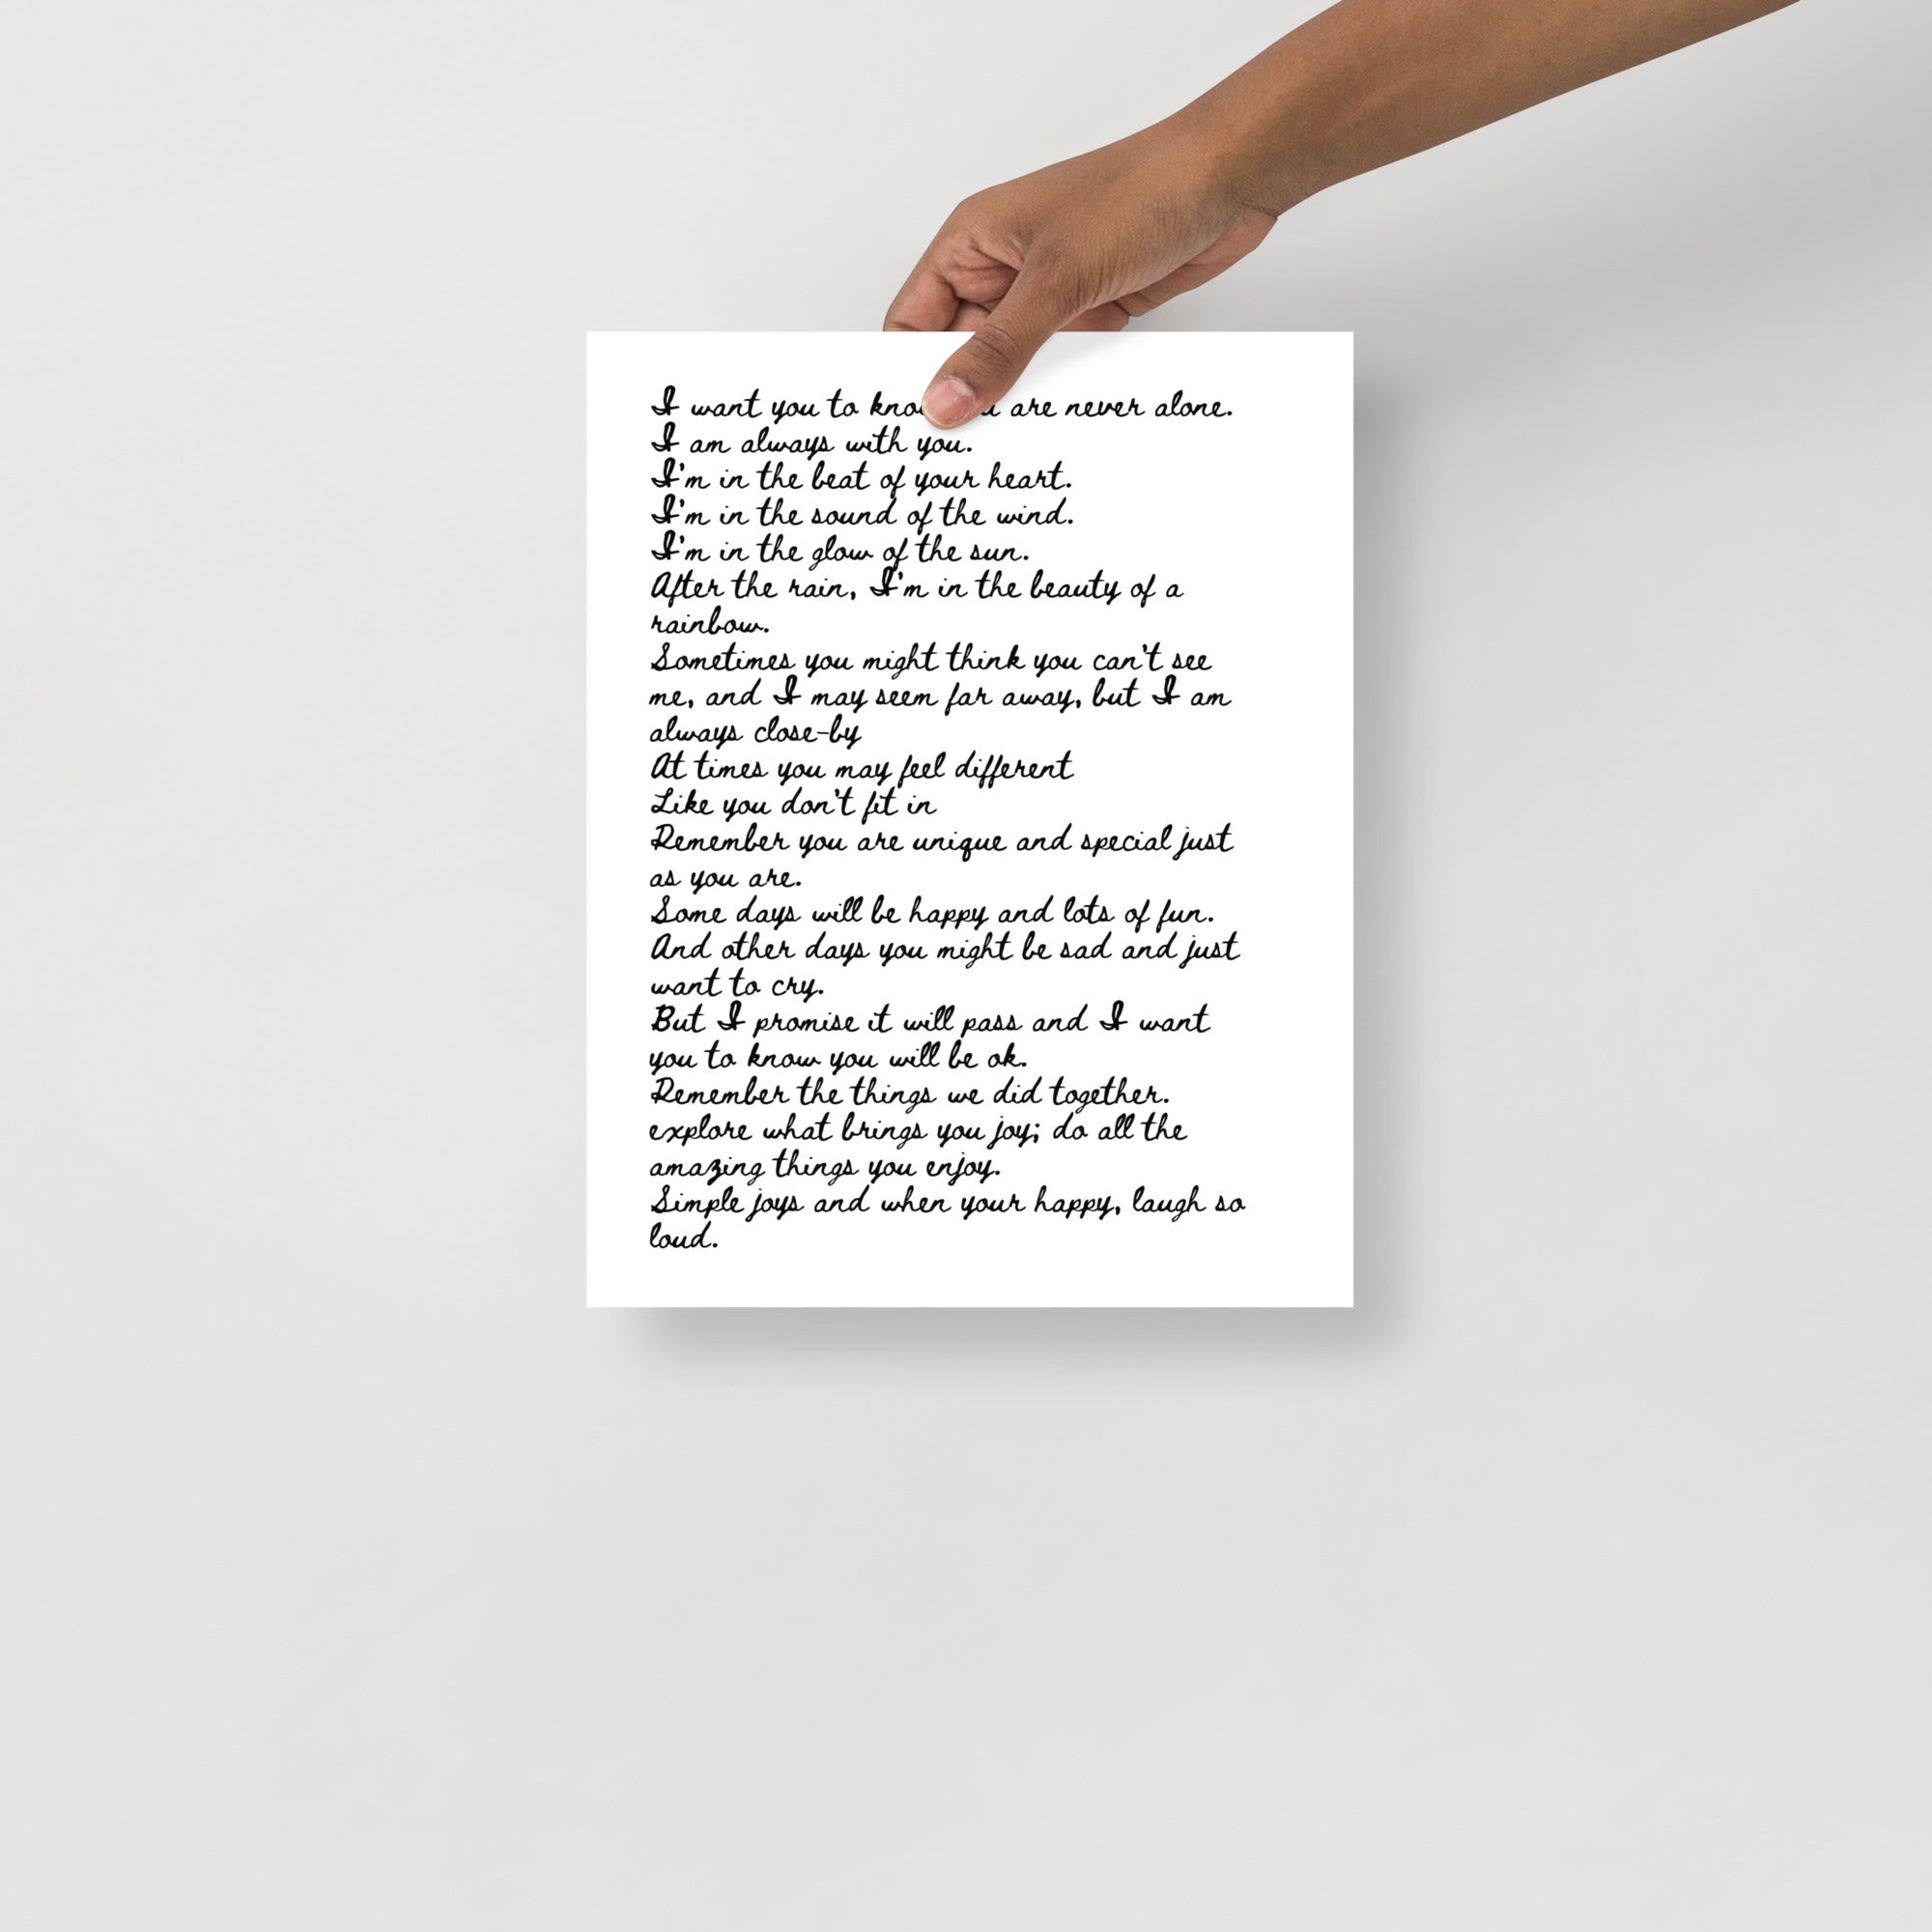 I want you to are never alone.
I am always with you.
I'm in the beat of your heart.
I'm in the sound of the wind.
I'm in the glow of the sun.
After the rain, I'm in the beauty of a
rainbow.
Sometimes you might think you can't see
me, and I may seem far away, but I am
always close-by
At times you may feel different
Like you don't fit in
Remember you are unique and special just
as you are.
Some days will be happy and lots of fun.
And other days you might be sad and just
want to cry.
But I promise it will pass and I want
you to know you will be ok.
Remember the things we did together.
explore what brings you joy; do all the
amazing things you enjoy.
Simple joys and when your happy, laugh so
loud.